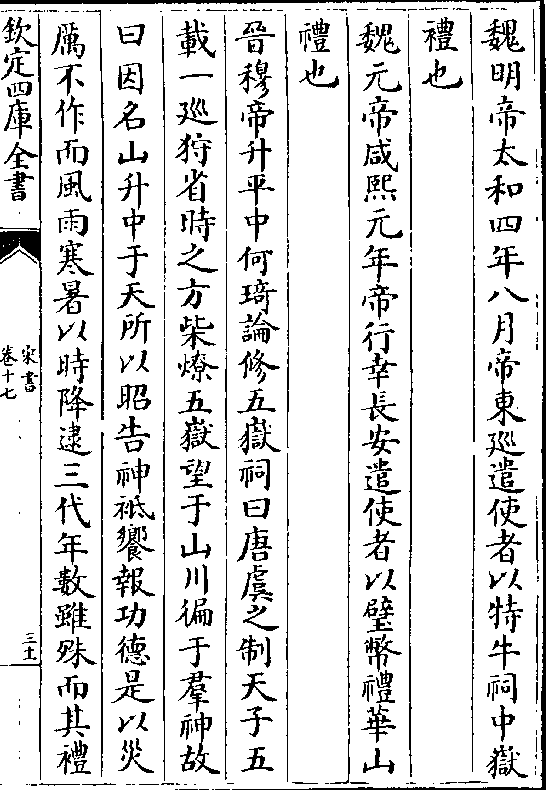 魏明帝太和四年八月帝東廵遣使者以特牛祠中嶽
禮也
魏元帝咸熙元年帝行幸長安遣使者以璧幣禮華山
禮也
晉穆帝升平中何琦論修五嶽祠曰唐虞之制天子五
載一廵狩省時之方柴燎五嶽望于山川徧于羣神故
曰因名山升中于天所以昭告神祗饗報功德是以災
厲不作而風雨寒暑以時降逮三代年數雖殊而其禮
欽定四庫全書
宋書
卷十七